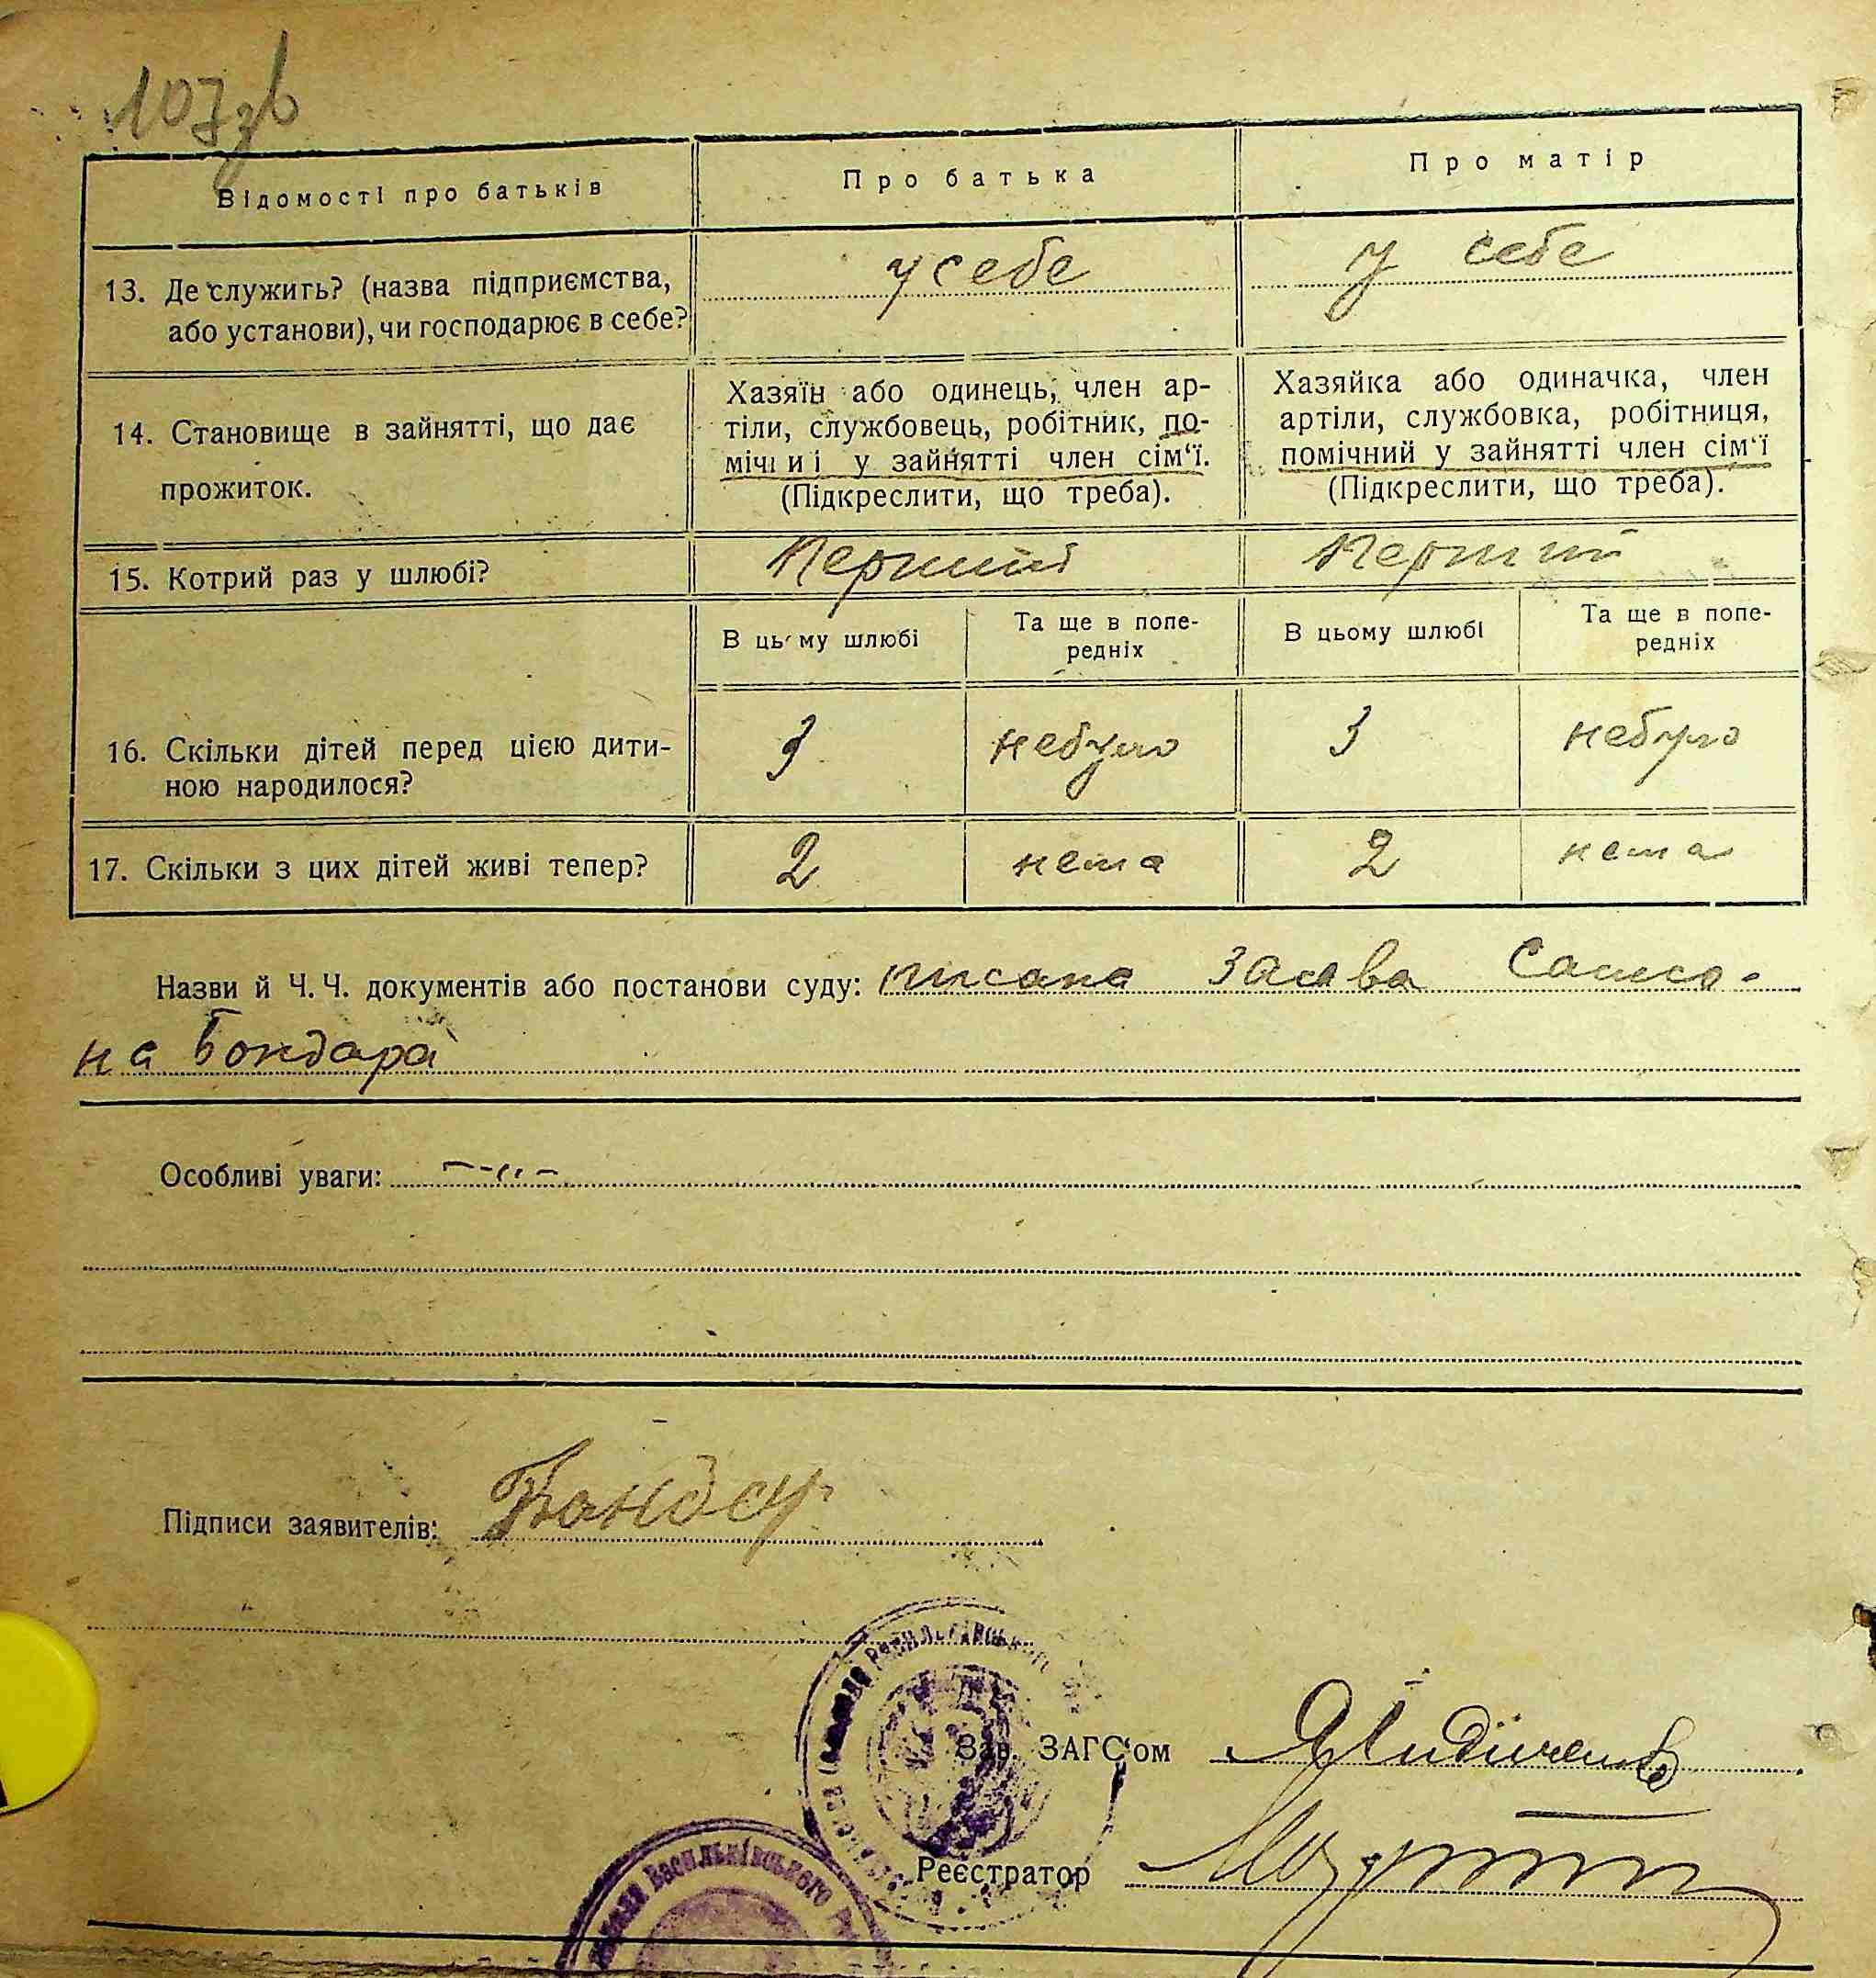 107зв
Відомості про батьків
Про батька
Про матір
13. Де служить? (назва підприємства,
або установи), чи господарює в себе?
у себе
у себе
14. Становище в зайнятті, що дає
прожиток.
Хазяїн або одинець, член ар-
тіли, службовець, робітник, по-
мічниі у зайнятті член сім‘ї.
(Підкреслити, що треба).
Хазяйка або одиначка, член
артіли, службовка, робітниця,
помічний у зайнятті член сім‘ї
(Підкреслити, що треба).
15. Котрий раз у шлюбі?
Перший
Перший
В цьому шлюбі
Та ще в попе-
редніх
В цьому шлюбі
Та ще в попе-
редніх
16. Скільки дітей перед цією дити-
ною народилося?
3
небуло
3
небуло
17. Скільки з цих дітей живі тепер?
2
нема
2
нема
Назви й Ч. Ч. документів або постанови суду: писана заява Самсо-
на Бондара
Особливі уваги:
Підписи заявителів: Бондар
Зав. ЗАГС‘ом
Реєстратор
Васильківського